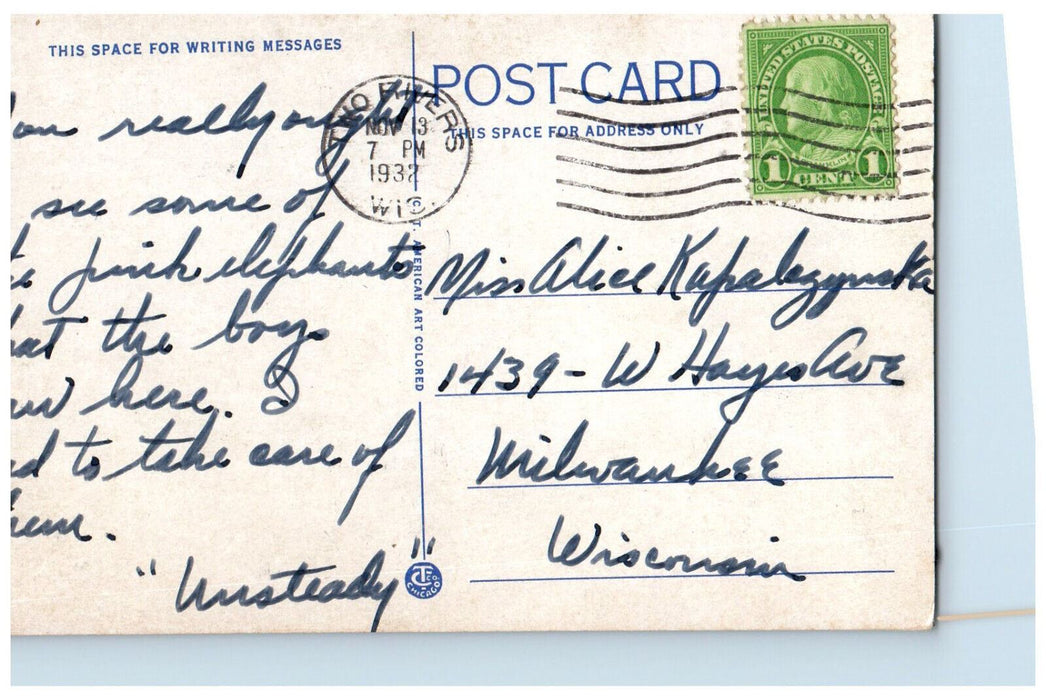 THIS SPACE FOR WRITING MESSAGES
POST CARD
THIS SPACE FOR ADDRESS ONLY
TWO RIVERS
NOV 13
7 PM
1932
WIS
UNITED STATES POSTAGE
FRANKLIN
1 CENT 1
You really ought
see some of
pink elephants
the boys
here. I
to take care of
"Unsteady"
AMERICAN ART COLORED
CHICAGO
Miss Alice Kapalczynska
1439 - W Hayes Ave
Milwaukee
Wisconsin